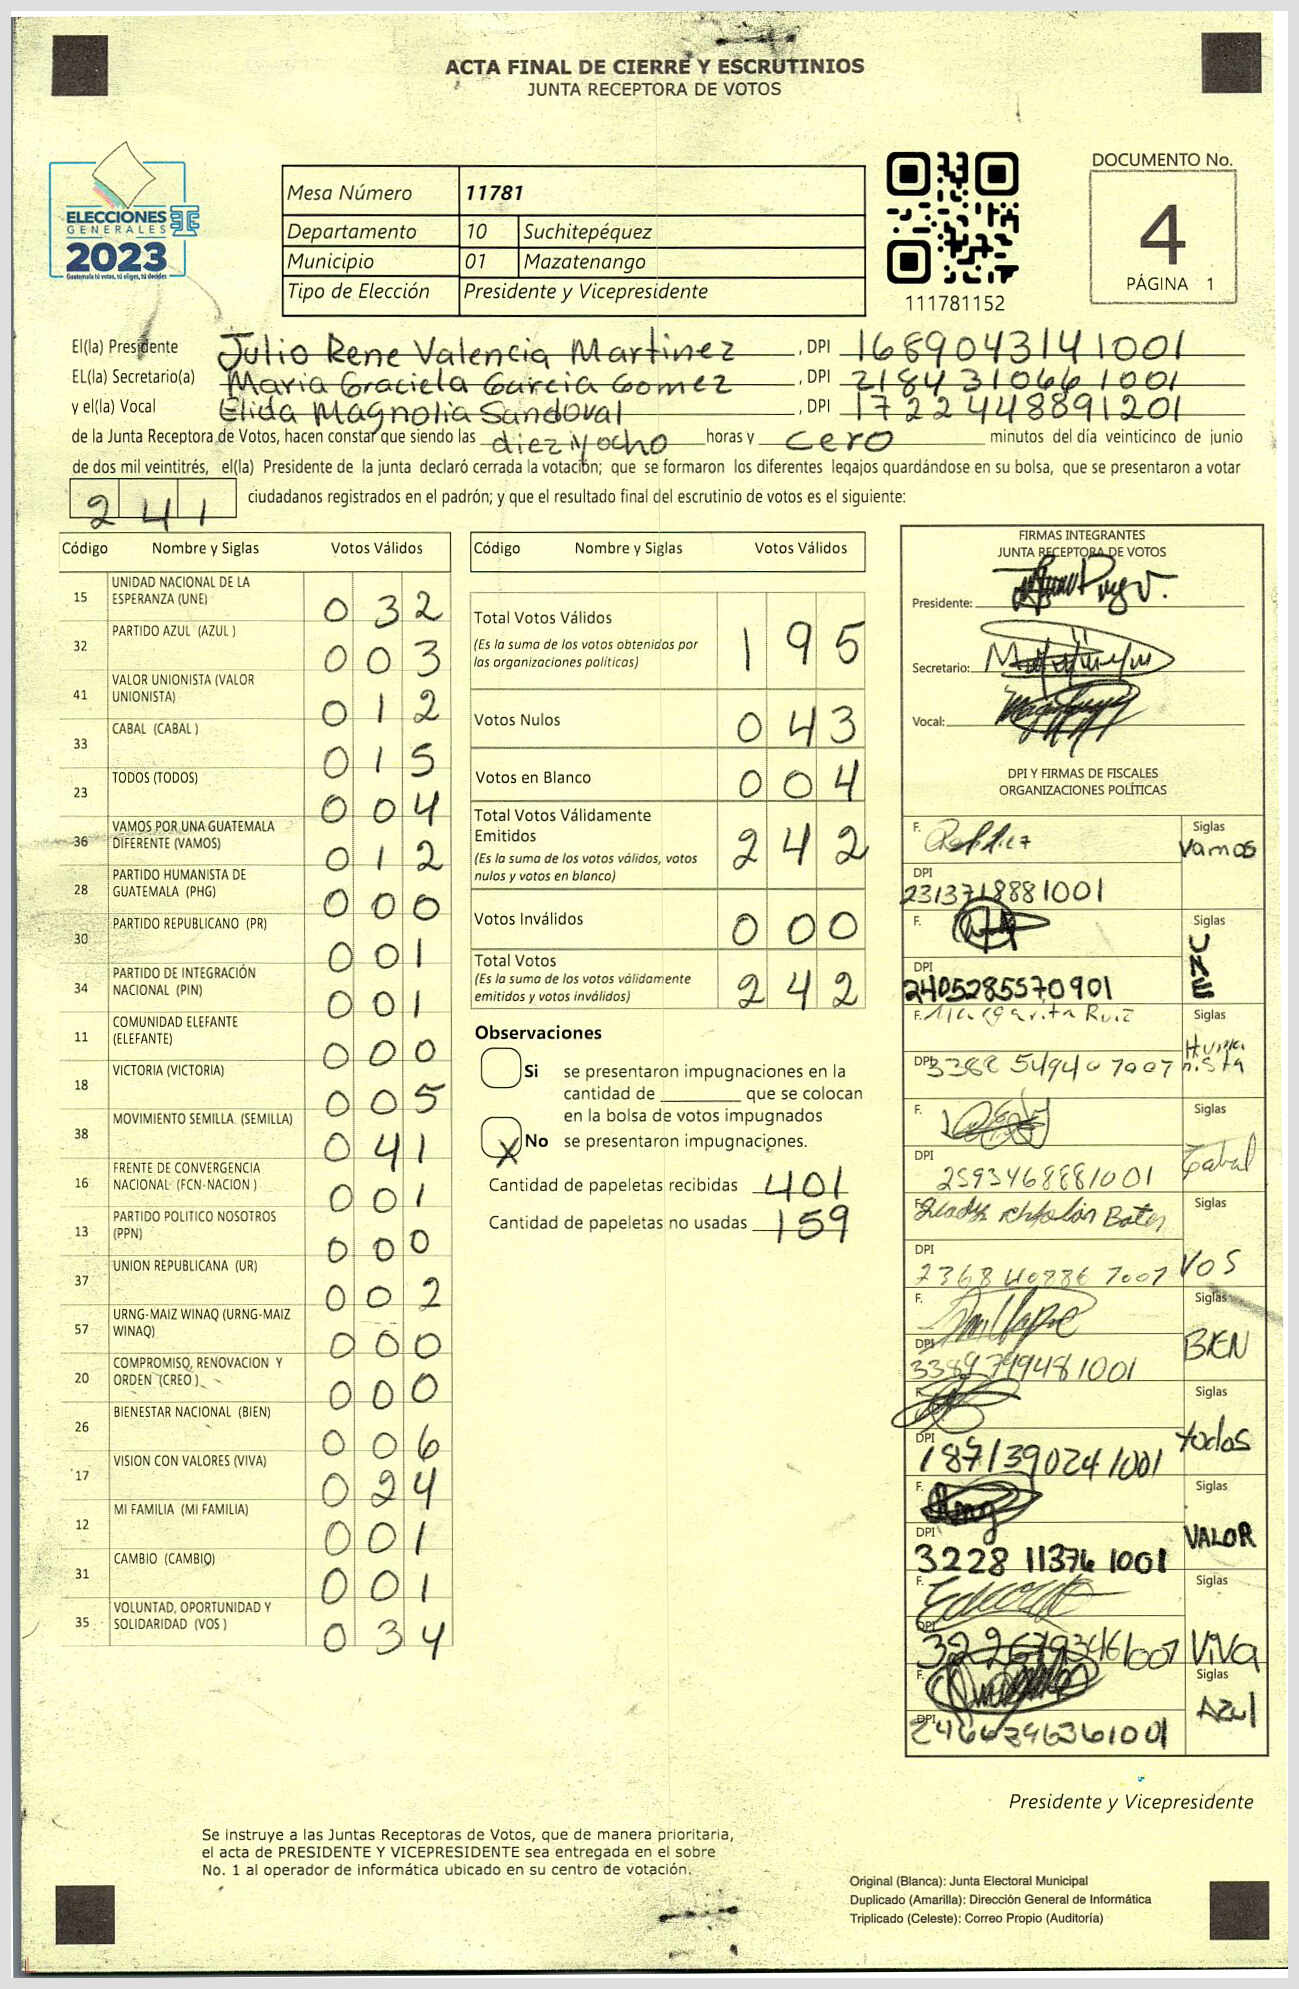 ACTA FINAL DE CIERRE Y ESCRUTINIOS
JUNTA RECEPTORA DE VOTOS
ELECCIONES
GENERALES
2023
Guatemala tú votas, tú eliges, tú decides
Mesa Número 11781
Departamento 10 Suchitepéquez
Municipio 01 Mazatenango
Tipo de Elección Presidente y Vicepresidente
111781152
DOCUMENTO No.
4
PÁGINA 1
El(la) Presidente Julio Rene Valencia Martinez, DPI 1689043141001
EL(la) Secretario(a) Maria Graciela Garcia Gomez, DPI 2184310661001
y el(la) Vocal Elida Magnolia Sandoval, DPI 1722448891201
de la Junta Receptora de Votos, hacen constar que siendo las dieziyocho horas y cero minutos del día veinticinco de junio
de dos mil veintitrés, el(la) Presidente de la junta declaró cerrada la votación; que se formaron los diferentes legajos guardándose en su bolsa, que se presentaron a votar
241 ciudadanos registrados en el padrón; y que el resultado final del escrutinio de votos es el siguiente:
Código Nombre y Siglas Votos Válidos
15 UNIDAD NACIONAL DE LA ESPERANZA (UNE) 032
32 PARTIDO AZUL (AZUL ) 003
41 VALOR UNIONISTA (VALOR UNIONISTA) 012
33 CABAL (CABAL ) 015
23 TODOS (TODOS) 004
36 VAMOS POR UNA GUATEMALA DIFERENTE (VAMOS) 012
28 PARTIDO HUMANISTA DE GUATEMALA (PHG) 000
30 PARTIDO REPUBLICANO (PR) 001
34 PARTIDO DE INTEGRACIÓN NACIONAL (PIN) 001
11 COMUNIDAD ELEFANTE (ELEFANTE) 000
18 VICTORIA (VICTORIA) 005
38 MOVIMIENTO SEMILLA (SEMILLA) 041
16 FRENTE DE CONVERGENCIA NACIONAL (FCN-NACION ) 001
13 PARTIDO POLITICO NOSOTROS (PPN) 000
37 UNION REPUBLICANA (UR) 002
57 URNG-MAIZ WINAQ (URNG-MAIZ WINAQ) 000
20 COMPROMISO, RENOVACION Y ORDEN (CREO ) 000
26 BIENESTAR NACIONAL (BIEN) 006
17 VISION CON VALORES (VIVA) 024
12 MI FAMILIA (MI FAMILIA) 001
31 CAMBIO (CAMBIO) 001
35 VOLUNTAD, OPORTUNIDAD Y SOLIDARIDAD (VOS ) 034
Código Nombre y Siglas Votos Válidos
Total Votos Válidos 195
(Es la suma de los votos obtenidos por
las organizaciones políticas)
Votos Nulos 043
Votos en Blanco 004
Total Votos Válidamente
Emitidos 242
(Es la suma de los votos válidos, votos
nulos y votos en blanco)
Votos Inválidos 000
Total Votos 242
(Es la suma de los votos válidamente
emitidos y votos inválidos)
Observaciones
Si se presentaron impugnaciones en la
cantidad de ________ que se colocan
en la bolsa de votos impugnados
X No se presentaron impugnaciones.
Cantidad de papeletas recibidas 401
Cantidad de papeletas no usadas 159
FIRMAS INTEGRANTES
JUNTA RECEPTORA DE VOTOS
Presidente:
Secretario:
Vocal:
DPI Y FIRMAS DE FISCALES
ORGANIZACIONES POLÍTICAS
F. Siglas Vamos
DPI 2313718881001
F. Siglas UNE
DPI 2405285570901
F. Margarita Ruiz Siglas
DPI
F. Siglas Cabal
DPI 2593468881001
F. Siglas VOS
DPI 2368408867007
F. Siglas BIEN
DPI
F. Siglas todos
DPI 1871390241001
F. Siglas VALOR
DPI 3228113761001
F. Siglas ViVa
DPI
F. Siglas Azul
DPI
Presidente y Vicepresidente
Se instruye a las Juntas Receptoras de Votos, que de manera prioritaria,
el acta de PRESIDENTE Y VICEPRESIDENTE sea entregada en el sobre
No. 1 al operador de informática ubicado en su centro de votación.
Original (Blanca): Junta Electoral Municipal
Duplicado (Amarilla): Dirección General de Informática
Triplicado (Celeste): Correo Propio (Auditoría)